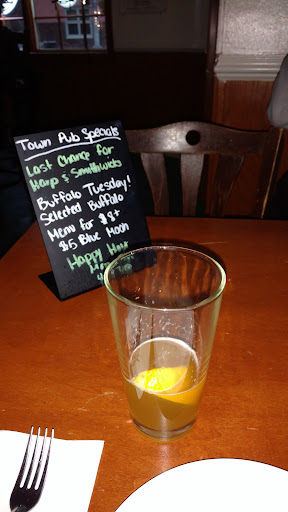 Town Pub Specials
Last Chance for
Harp & Smithwicks
Buffalo Tuesday!
Selected Buffalo
Menu for $8+
$5 Blue Moon
Happy Hour